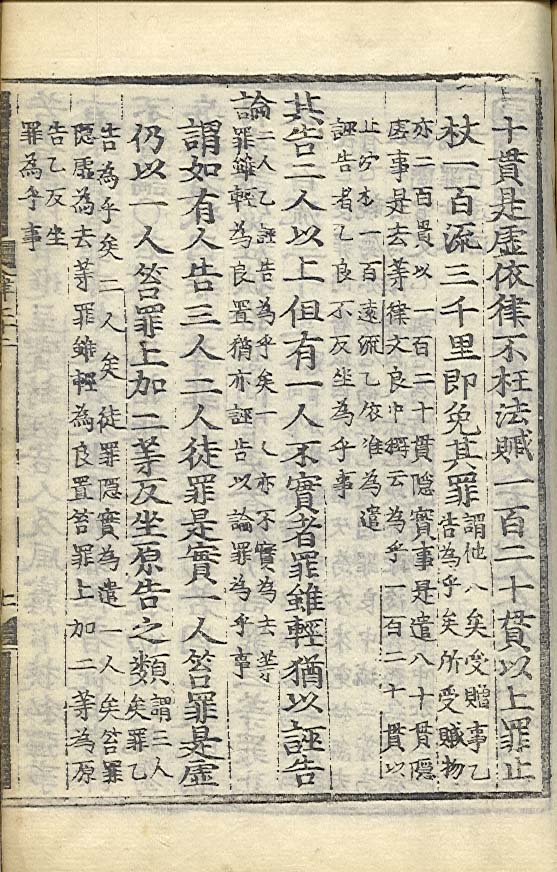 十貫是虛依律不枉法贓一百二十貫以上罪止
杖一百流三千里即免其罪謂他人矣受贈事乙
告為乎矣所受贓物
亦二百貫以一百二十貫隱實事是遣八十貫隱
虛事是去等律文良中稱云為乎一百二十貫以
上乙杖一百遠流乙依准為遣
誣告者乙良不反坐為乎事
其告二人以上但有一人不實者罪雖輕猶以誣告
論二人乙誣告為乎矣一人亦不實為去等
罪雖輕為良置猶亦誣告以論罪為乎事
謂如有人告三人二人徒罪是實一人笞罪是虛
仍以一人笞罪上加二等反坐原告之類謂三人
矣罪乙
告為乎矣二人矣徒罪隱實為遣一人矣笞罪
隱虛為去等罪雖輕為良置笞罪上加二等為原
告乙反坐
罪為乎事
律二十二